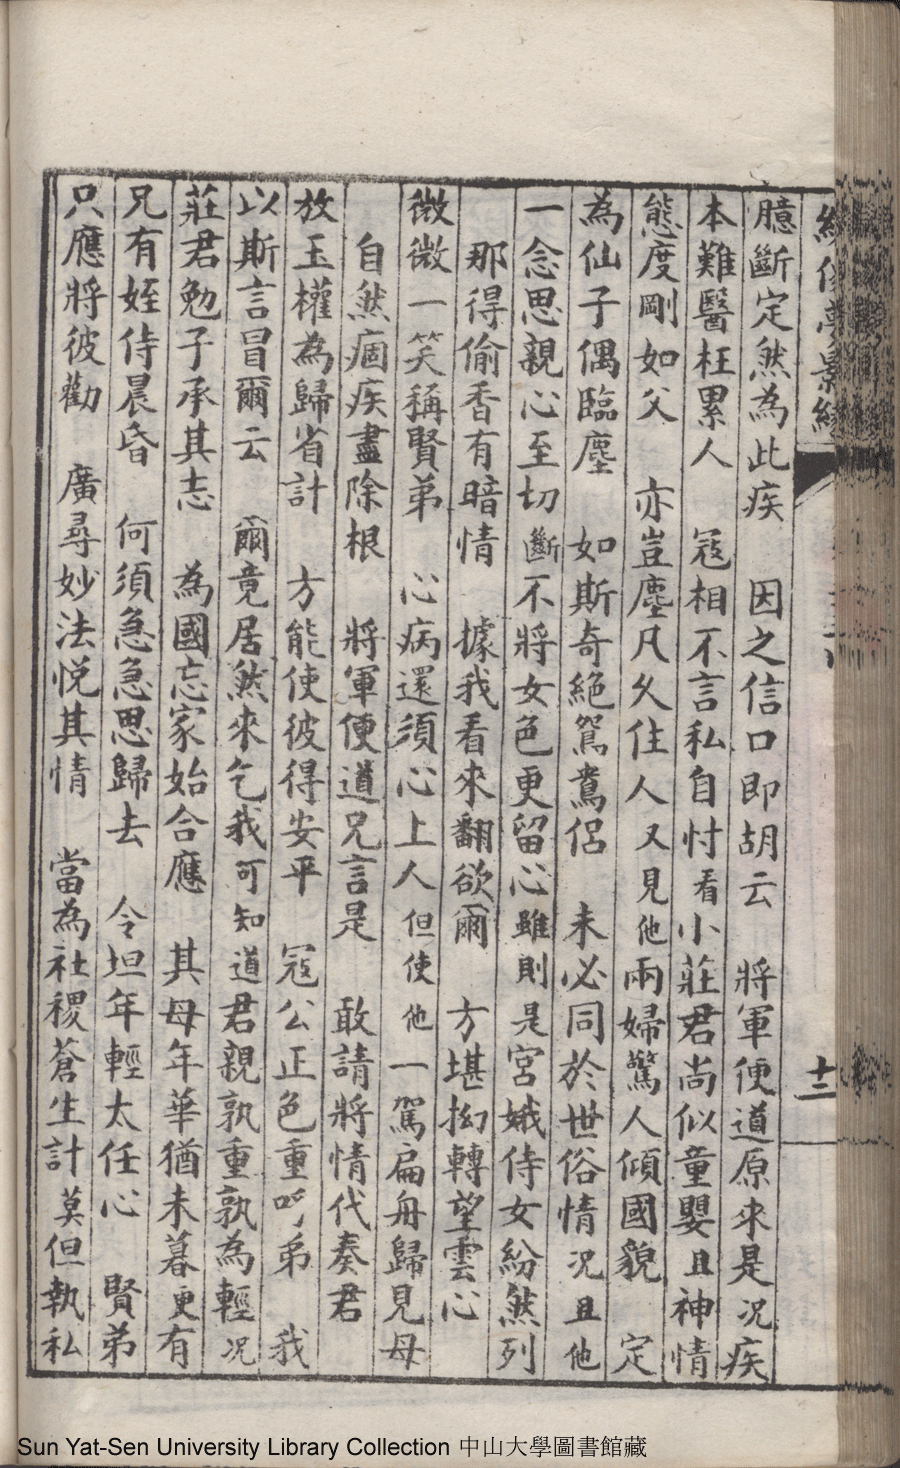 臆斷定然為此疾　因之信口即胡云　將軍便道原來是况疾
本難醫枉累人　冦相不言私自忖看小莊君尚似童嬰且神情
態度剛如父　亦豈塵凡久住人又見他兩婦驚人傾國貌　定
為仙子偶臨塵　如斯奇絕鴛鴦侶　未必同於世俗情况且他
一念思親心至切斷不將女色更留心雖則是宮娥侍女紛然列
那得偷香有暗情　據我看來翻欲爾　方堪拗轉望雲心
微微一笑稱賢弟　心病還須心上人但使他一駕扁舟歸見母
自然痼疾盡除根　將軍便道兄言是　敢請將情代奏君
放玉權為歸省計　方能使彼得安平　冦公正色重呼弟　我
以斯言冒爾云　爾竟居然來乞我可知道君親孰重孰為輕况
莊君勉子承其志　為國忘家始合應　其母年華猶未暮更有
兄有姪侍晨昏　何須急急思歸去　令坦年輕太任心　賢弟
只應將彼勸　廣尋妙法悅其情　當為社稷蒼生計莫但執私
十二
Sun Yat-Sen University Library Collection 中山大學圖書館藏